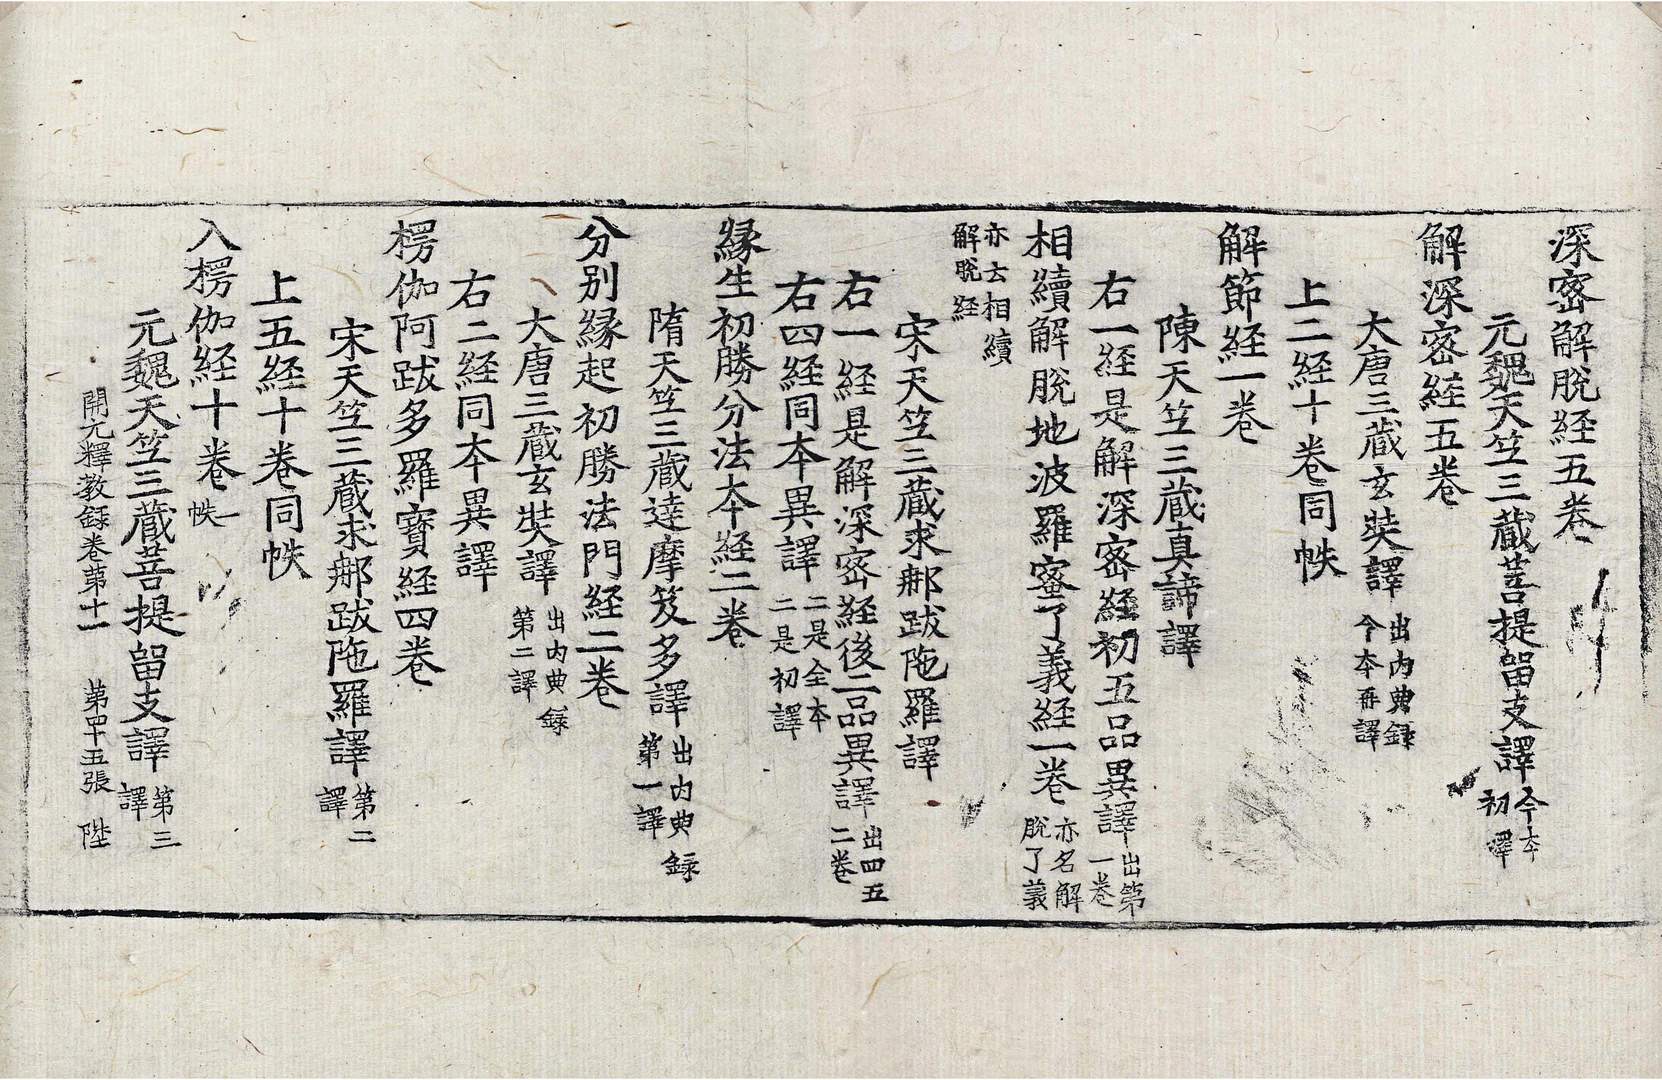 深密解脫経五卷
元魏天竺三藏菩提留支譯 今本初譯
解深密経五卷
大唐三藏玄奘譯 出內典録今本再譯
上二経十卷同帙
解節経一卷
陳天竺三藏真諦譯
右一経是解深密経初五品異譯 出第一卷
相續解脫地波羅蜜了義経一卷 亦名解脫了義
亦云相續解脫経
宋天竺三藏求那跋陁羅譯
右一経是解深密経後二品異譯 出四五二卷
右四経同本異譯 二是全本二是初譯
縁生初勝分法本経二卷
隋天竺三藏達摩笈多譯 出內典録第一譯
分別縁起初勝法門経二卷
大唐三藏玄奘譯 出內典録第二譯
右二経同本異譯
楞伽阿跋多羅寶経四卷
宋天竺三藏求那跋陁羅譯 第二譯
上五経十卷同帙
入楞伽経十卷 一帙
元魏天竺三藏菩提留支譯 第三譯
開元釋教録卷第十一 第四十五張 陛